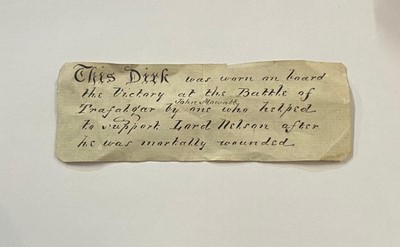 This Dirk was worn on board
the Victory at the Battle of
John Mowatt
Trafalgar by one who helped
to support Lord Nelson after
he was mortally wounded